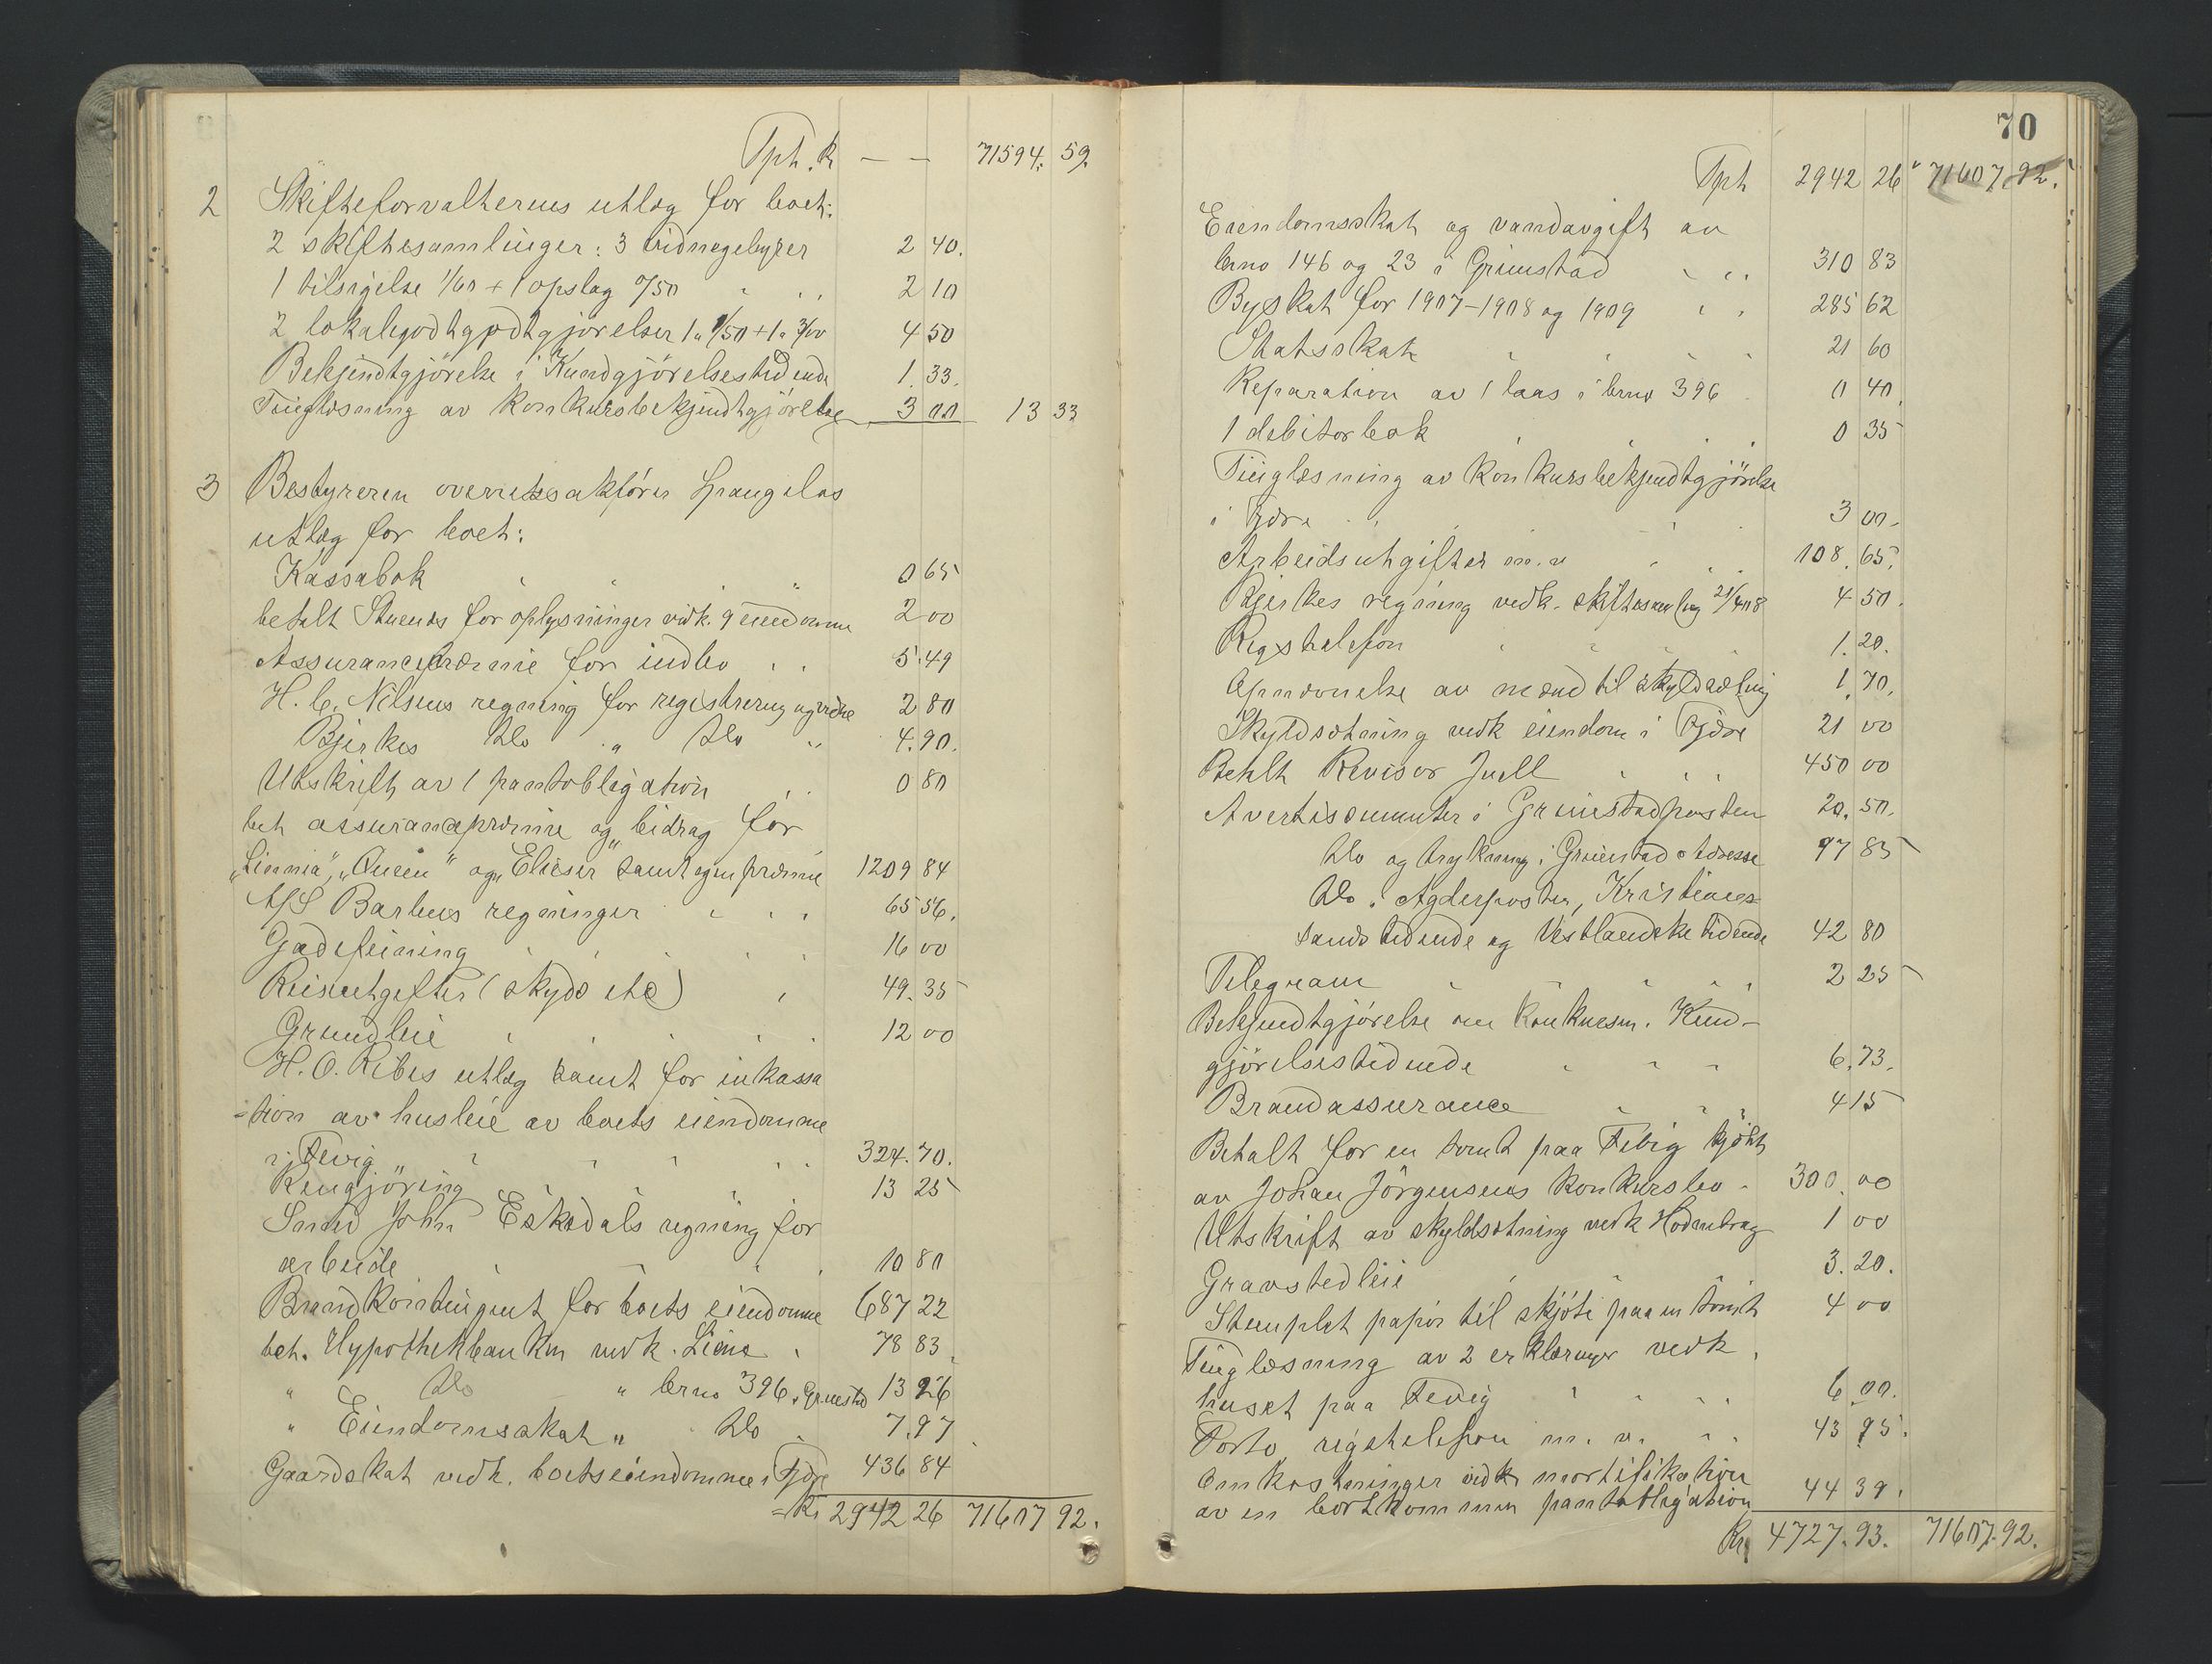 Tph. K — — 71594. 59.
2 Skifteforvalterens utlæg for boet:
2 skiftesamlinger: 3 vidnegebyrer 2 40.
1 tilsigelse 1/60 + 1 opslag 0/50 2 10
2 lokalegodtgodtgjörelser 1 a 1/50 + 1 a 3/00 4 50
Bekjendtgjörelse i Kundgjörelsestidende 1. 33.
Tinglæsning av konkursbekjendtgjörelse 3 00 13 33
3 Bestyreren overretssakförer Spangelos
utlæg for boet:
Kassabok 0 65
betalt Stuenes for oplysninger vedk. 9 eiendomme 2 00
Assurancepræmie for indbo 5. 49
H. C. Nilsens regning for registrering og vidne 2 80
Bjerkes do " do " 4. 90.
Utskrift av 1 pantobligation 0 80
bet assurancepræmie og bidrag for
"Linnia", "Queen" og "Elieser" samt egen præmie 1209 84
A/S Barbus regninger 65 56.
Gadefeining 16 00
Reiseutgifter (skyds etc) 49. 35
Grundleie 12 00
H. O. Ribes utlæg samt for inkassa
-tion av husleie av boets eiendomme
i Fevig 324. 70.
Rengjöring 13 25
Smed John Eskedals regning for
arbeide 10 80
Brandkontingent for boets eiendomme 687 22
bet. Hypothekbanken vedk. Liene 78 83.
" Do " brno 396 i Grimstad 13 26
" Eiendomsskat " do 7. 97.
Gaardskat vedk. boets eiendomme i Fjære 436 84
Kr. 2942 26 71607 92.
70
Tph 2942 26 71607. 92.
Eiendomsskat og vandavgift av
brno 146 og 23 i Grimstad 310 83
Byskat for 1907-1908 og 1909 285 62
Statsskat 21 60
Reparation av 1 laas i brno 396 0 40.
1 debitorbok 0 35
Tinglæsning av konkursbekjendtgjörelse
i Fjære 3 00.
Arbeidsutgifter m. v 108. 65.
Bjerkes regning vedk. skiftesamling 21/4 08 4 50.
Rigstelefon 1. 20.
Opnævnelse av mænd til skyldsætning 1. 70.
Skyldsætning vedk eiendom i Fjære 21 00
Betalt Revisor Juell 450 00
Avertissementer i Grimstadposten 20. 50.
Do og trykning i Grimstad Adresse 97 85
Do i Agderposten, Kristians-
sands tidende og Vestlandske tidende 42 80
Telegram 2 25
Bekjendtgjörelse om konkursen i Kund-
gjörelsestidende 6. 73.
Brandassurance 4 15
Betalt for en tomt paa Fevig kjöbt
av Johan Jörgensens konkursbo 300. 00
Utskrift av skyldsætning vedk Hodnebrog 1 00
Gravstedleie 3. 20.
Stemplet papir til skjöte paa en tomt 4 00
Tinglæsning av 2 erklæringer vedk.
huset paa Fevig 6. 00.
Porto rigstelefon m. v. 43 95.
Omkostninger vedk mortifikation
av en bortkommen pantobligation 44 39.
Kr. 4727. 93. 71607. 92.